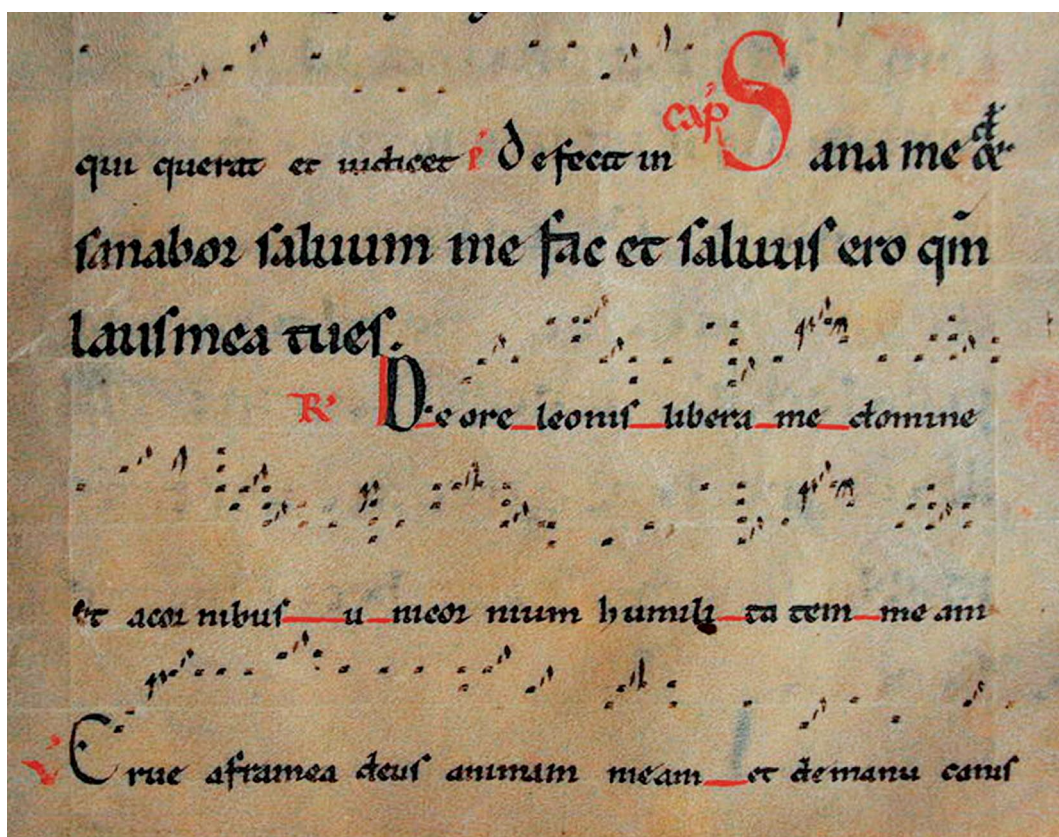 qui querat et iudicet P' Defecit in cap' Sana me dne
sanabor saluum me fac et saluus ero qm̄
laus mea tu es.
R' De ore leonis libera me domine
et a cor nibus u nicor nium humili ta tem me am
V' Erue a framea deus animam meam et de manu canis